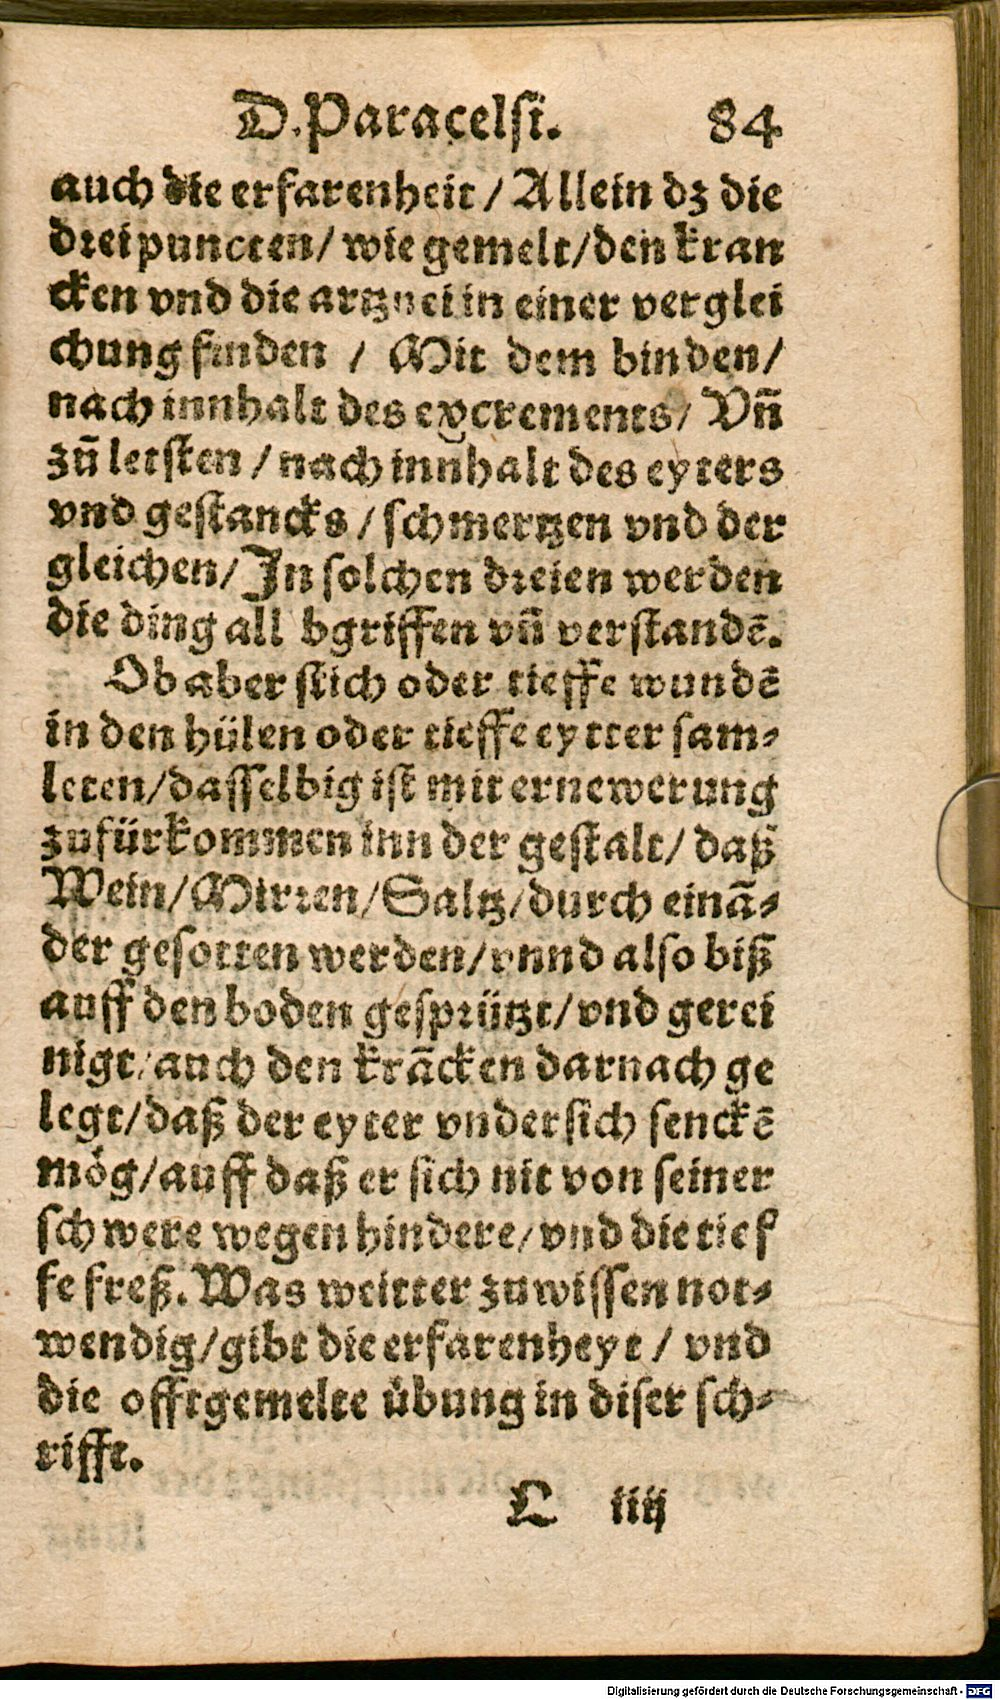 D. Paracelsi. 84
auch die erfarenheit / Allein dz die
drei puncten / wie gemelt / den kran
cken vnd die artznei in einer verglei
chung finden / Mit dem binden /
nach innhalt des excrements / Vñ
zů letsten / nach innhalt des eyters
vnd gestancks / schmertzen vnd der
gleichen / In solchen dreien werden
die ding all bgriffen vñ verstandē.
Ob aber stich oder tieffe wundē
in den hülen oder tieffe eytter sam-
leten / dasselbig ist mit ernewerung
zufürkommen inn der gestalt / daß
Wein / Mirren / Saltz / durch einā-
der gesotten werden / vnnd also biß
auff den boden gesprützt / vnd gerei
nigt / auch den krācken darnach ge
legt / daß der eyter vndersich senckē
mög / auff daß er sich nit von seiner
schwere wegen hindere / vnd die tief
fe freß. Was weitter zuwissen not-
wendig / gibt die erfarenheyt / vnd
die offtgemelte übung in diser sch-
rifft.
L iiij
Digitalisierung gefördert durch die Deutsche Forschungsgemeinschaft - DFG